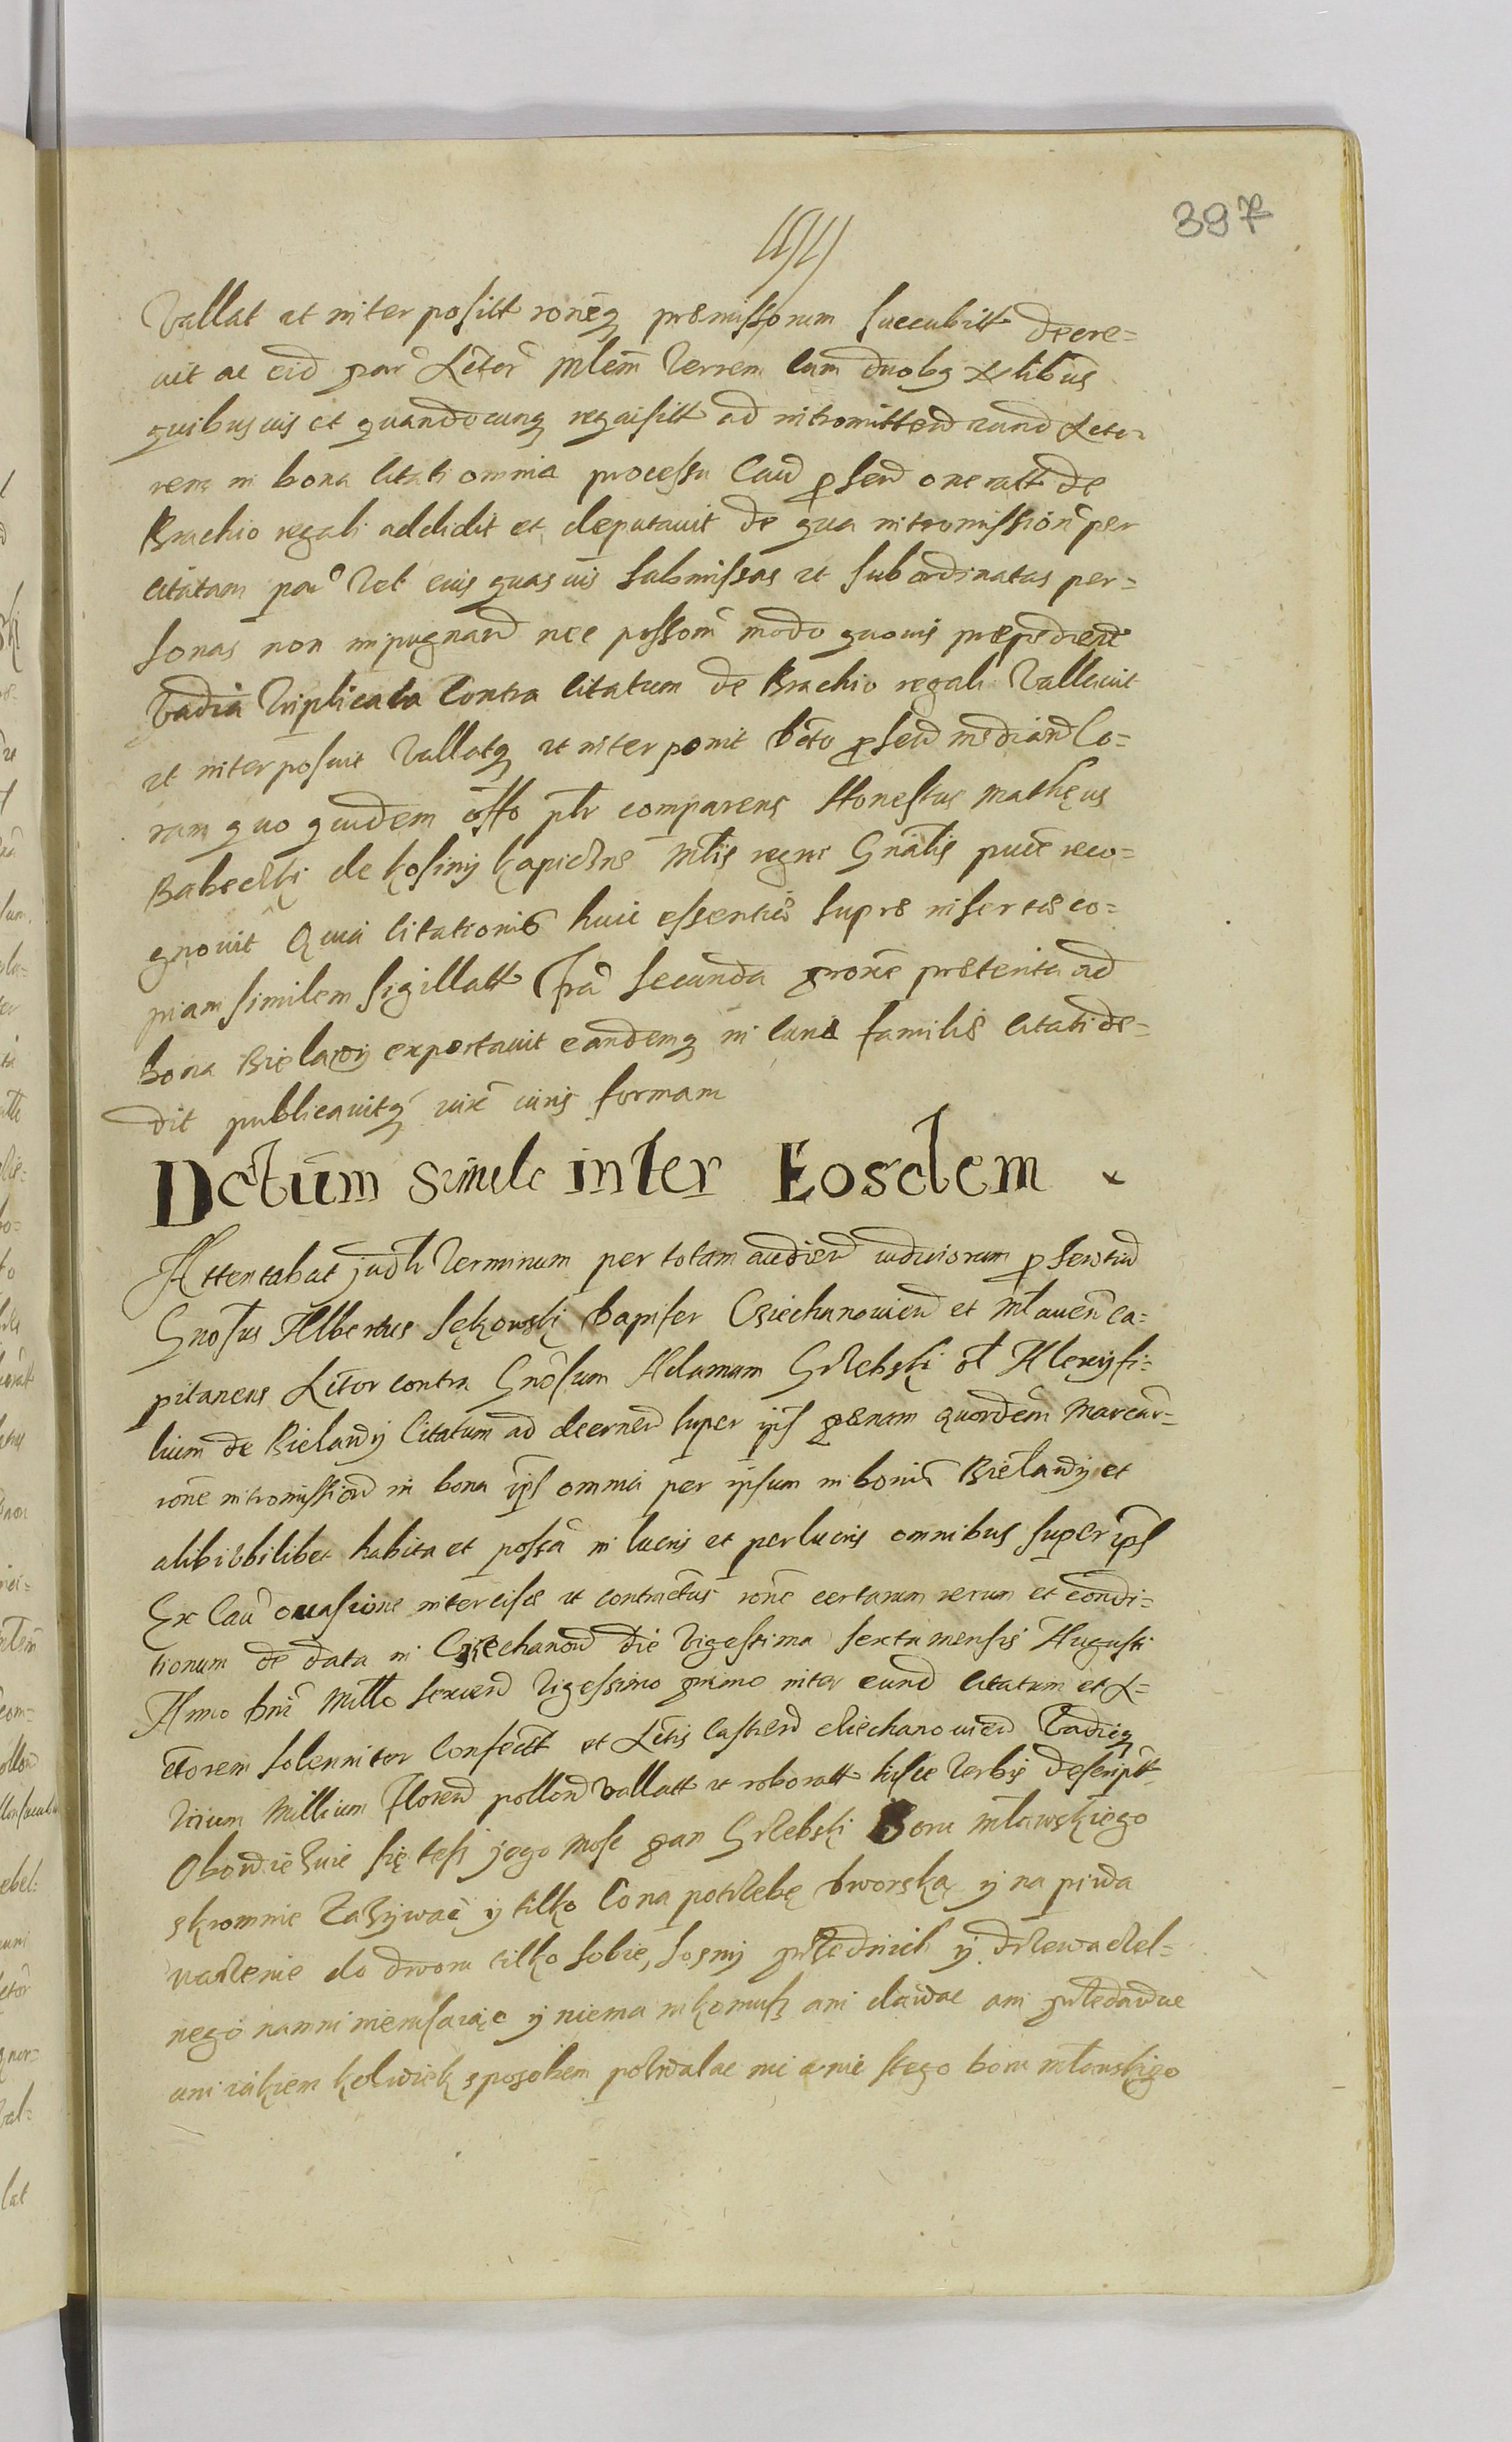 397
vallat et interposit ronēq premissorum succubit decre=
vit ac eid par Letor Mlem Terrem cum duobq xtibus
quibusuis et quandocunq requisitt ad intromittend eund Leto=
rem in bona citati omnia processu caus psend oneratt de
Brachio regali addidit et deputauit de qua intromission per
citatam par vel eius quasuis submissas et subordinatas per=
sonas non impugnand nec possom modo quouis prepediend
Vadia triplicata contra citatum de Brachio regali vallauit
et interposuit vallatq et interponit Dcto psend mediand co=
ram quo quidem offo pltr comparens Honestus Matheus
Babecki de Kosiny Kapiczne Mtis regni Gnalis puce reco=
gnouit Quia citationis huic essentie supre inserte co=
piam similem sigillatt fra secunda prone preterita ad
bona Bielawy exportauit eandemq in cune familie citati de=
dit publicauitq iux iuris formam
Dctum simile inter Eosdem
Attentabat judtr Terminum per totam audien iudiciorum psentiu
Gnosus Albertus Sękowski Dapifer Cziechanouien et Mlauen ca=
pitaneus Letor contra Gnosum Adamum Grzebski ol Alexy fi=
lium de Bielawy Citatum ad decernend super ips penam quordem marcar
rone intromission in bona ips omnia per ipsum in bonis Bielawy et
alibi vbilibet habita et possa in lucris et perlucris omnibus super ips
Ex cau euasione intercise et contractus rone certarum rerum et condi=
tionum de data in Cziechanow die vigesima sexta mensis Augusti
Anno Dni Millo sexcen vigesimo primo inter eund citatum et L=
ctorem solenniter confect et Letis Castren Ciechanouien Vadieq
trium Millium floren pollon vallatt et roboratt hisce verbis descript
Obowięzuie się tesz jego Mosc pan Grzebski Boru Mławskiego
skromnie zazywać y tilko co na potrzebę Dworską y na piwa
warzenie do dworu tilko sobie, sosny przednich y drzewa dzel=
nego namni nierusaiąc y niema nikomusz ani dawac ani przedawac
ani iakiem kolwiek sposobem pozwalac nic a nic stego boru mławskigo